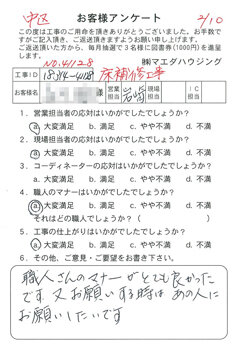 中区 お客様アンケート 2/10
この度は工事のご用命を頂きありがとうございました。お手数で
すがご記入頂き、ご返送頂きますようお願い申し上げます。
ご返送頂いた方から、毎月抽選で3名様に図書券(1000円)を進呈
します。
NO.41128 ㈱マエダハウジング
工事ID 床補修工事
お客様名 様 営業担当 岩崎 現場担当 IC担当
1.営業担当者の応対はいかがでしたでしょうか?
a.大変満足 b.満足 c.やや不満 d.不満
2.現場担当者の応対はいかがでしたでしょうか?
a.大変満足 b.満足 c.やや不満 d.不満
3.コーディネーターの応対はいかがでしたでしょうか?
a.大変満足 b.満足 c.やや不満 d.不満
4.職人のマナーはいかがでしたでしょうか?
a.大変満足 b.満足 c.やや不満 d.不満
それはどの職人でしょうか?( )
5.工事の仕上がりはいかがでしたでしょうか?
a.大変満足 b.満足 c.やや不満 d.不満
6.その他、ご意見・ご要望をお書き下さい。
職人さんのマナーがとても良かった
です 又お願いする時は あの人に
お願いしたいです